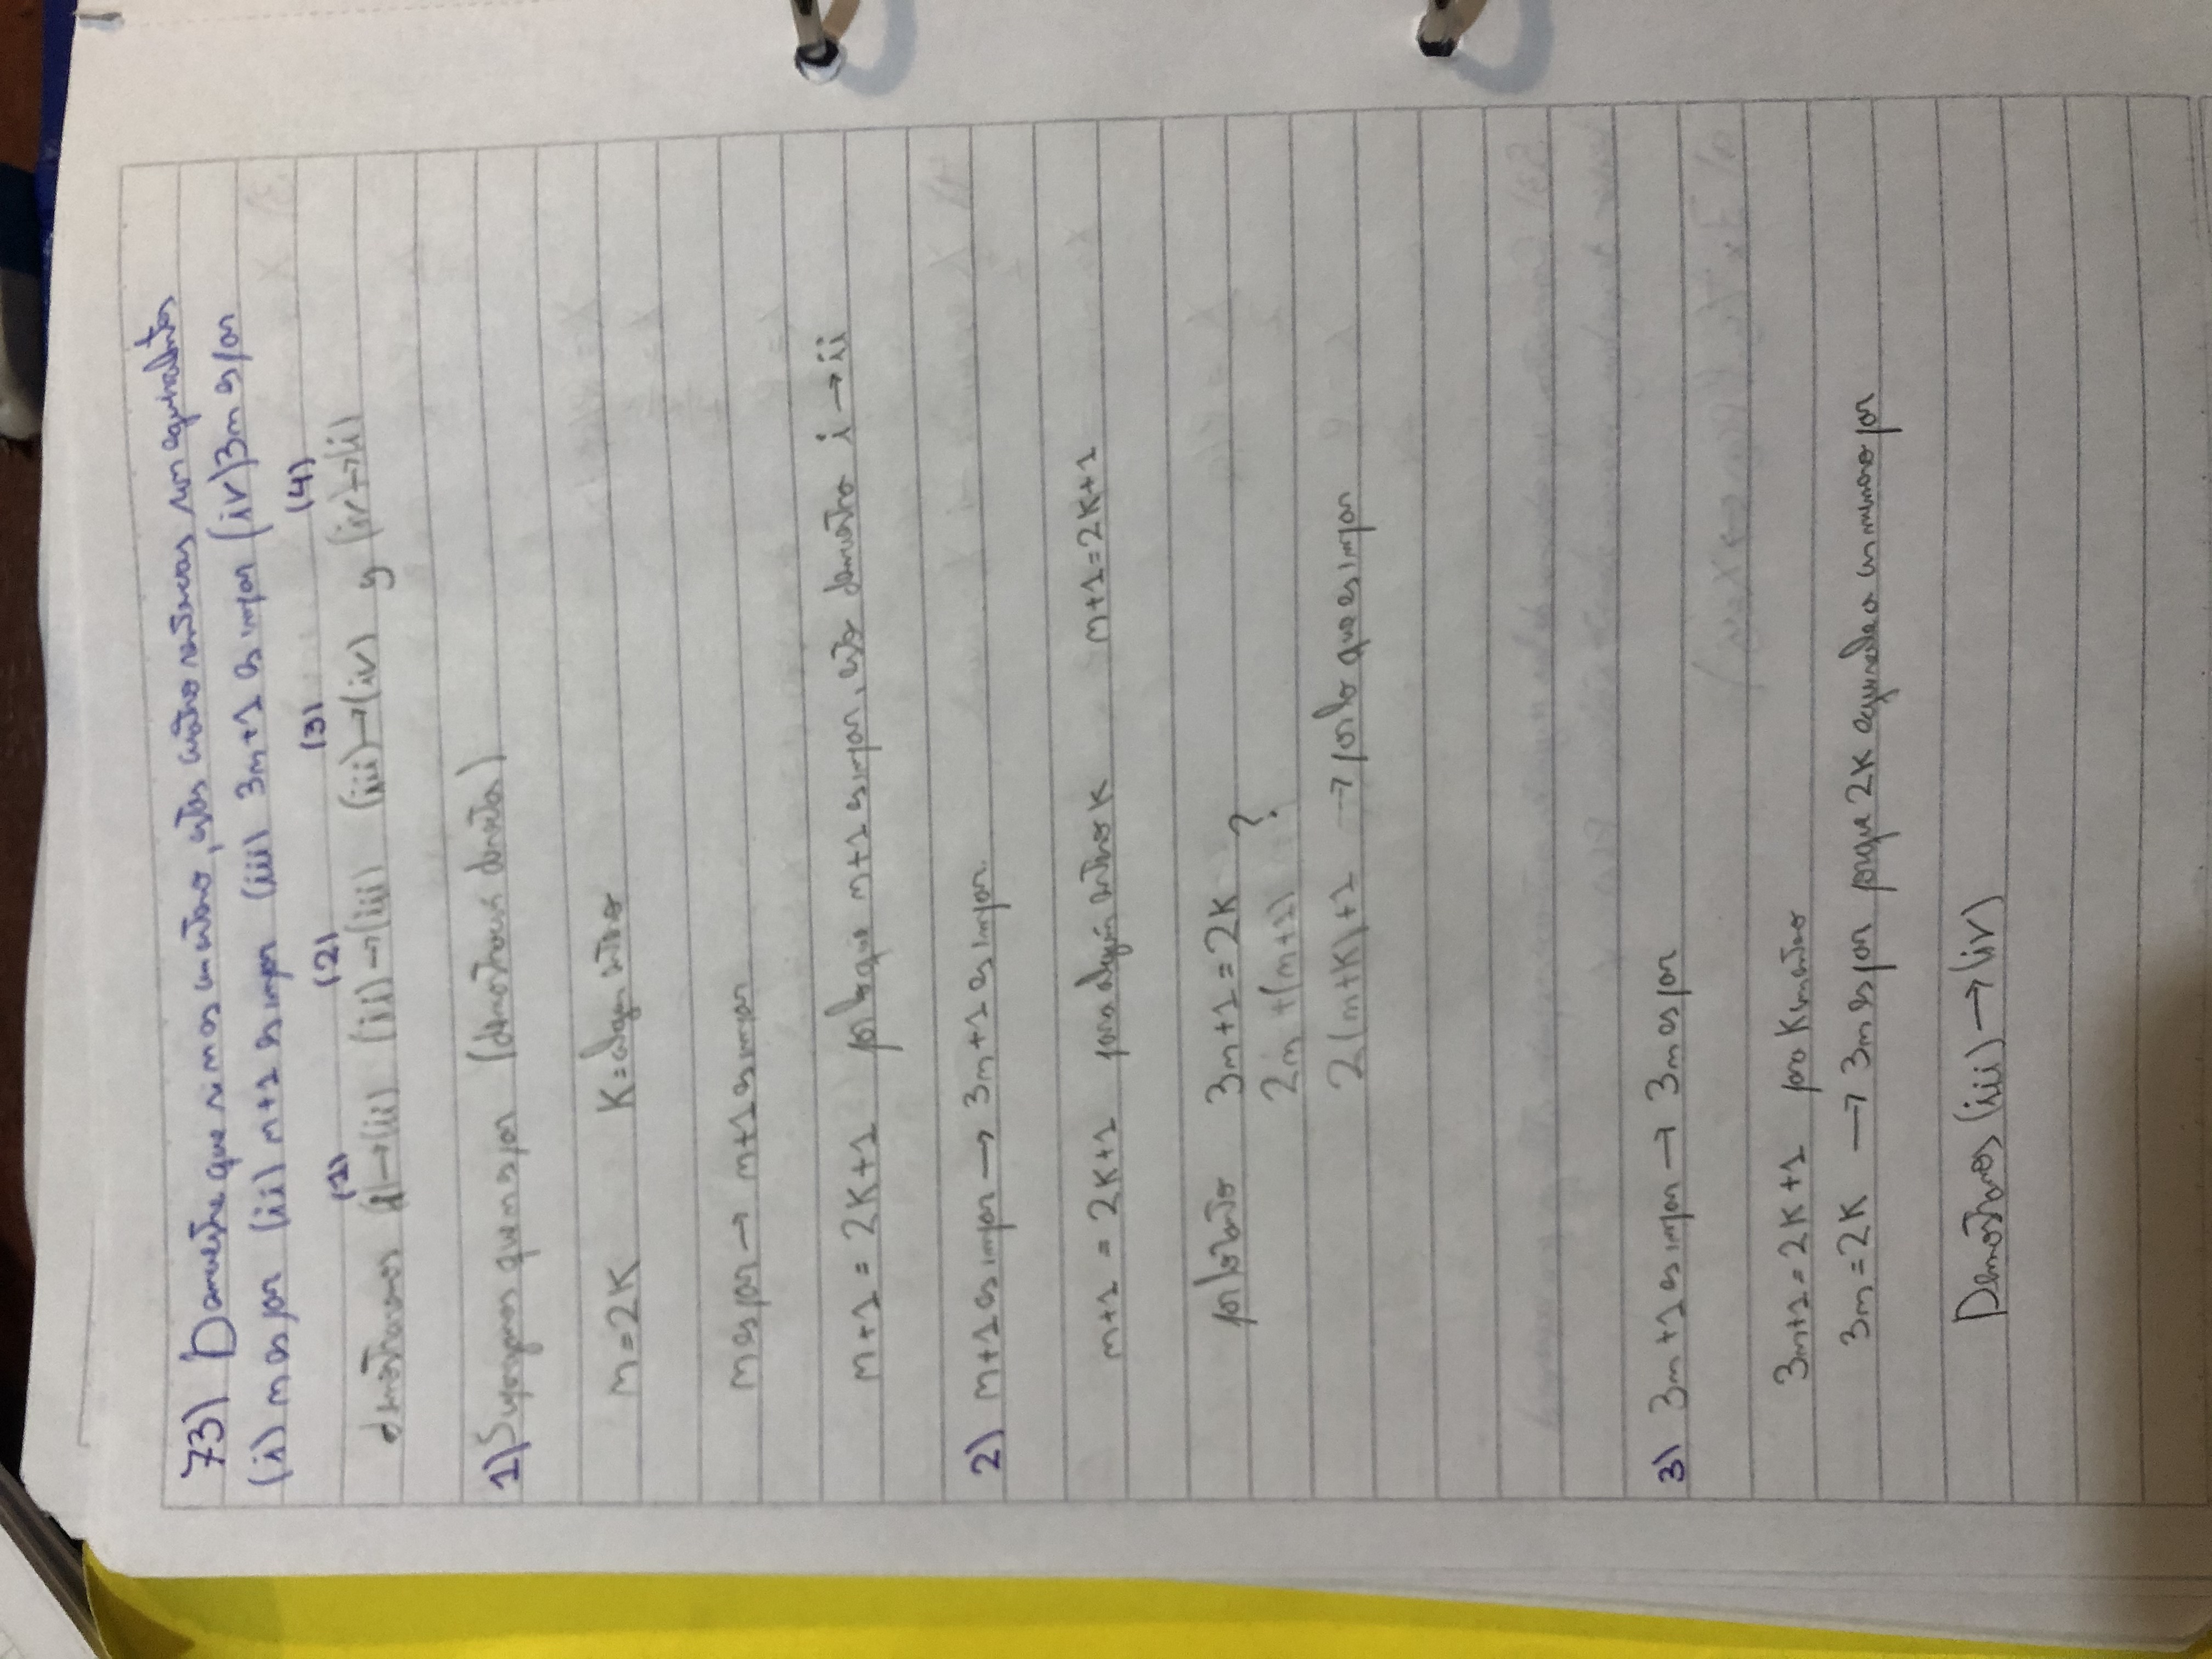 73) Demuestre que si n es un entero, estas cuatro sentencias son equivalentes
(i) n es par (ii) n+1 es impar (iii) 3n+1 es impar (iv) 3n es par
(1) (2) (3) (4)
demostraremos (i)→(ii) (ii)→(iii) (iii)→(iv) y (iv)→(i)
1) Supongamos que n es par (demostración directa)
n=2K K=algun entero
n es par → n+1 es impar
n+1 = 2K+1 por lo que n+1 es impar, esto demuestra i → ii
2) n+1 es impar → 3n+1 es impar.
n+1 = 2K+1 para algún entero K n+1=2K+1
por lo tanto 3n+1=2K
2n+(n+1) ?
2(n+K)+1 → por lo que es impar
3) 3n+1 es impar → 3n es par
3n+1=2K+1 para K un entero
3n=2K → 3n es par porque 2K equivale a un numero par
Demostramos (iii)→(iv)